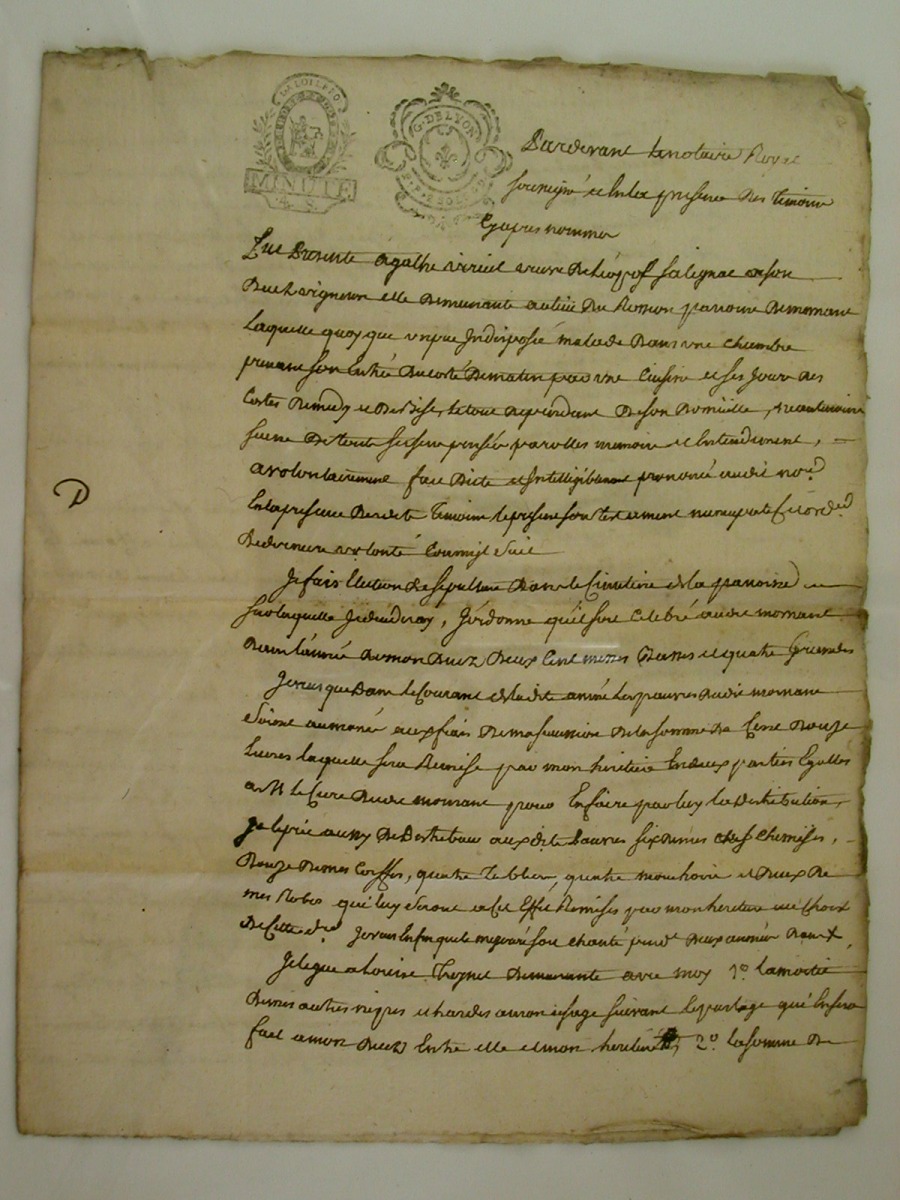 LA LOI LE RO
MINUTE
4. S.
G. DE LYON
Pardevant le notaire Royal
soussigné et En la presence des temoins
Cy apres nommés
fut Presente agathe viruel veuve De Leopost salignac a son
Deces vigneron elle Demeurante au lieu Du Rosson parroisse De mornant
Laquelle quoy que un peu Indisposée malade Dans une chambre
prenant son Entrée Du Coté De matin par une Cuisine et ses Jours des
Cotés De midy et De Bise, le tout dependant De son Domicille,
saine De tout ses sens pensée parolles memoire et Entendement,
a volontairement fait Dicté et Intelligiblement prononcé audit no.re
En la presence Desdits Temoins le present son testament nuncupatif et ord.ce
De derniere volonté Comme s'Suit
Je fais Election De sepulture Dans le Cimetiere de la parroisse
sur laquelle Je decederay, J'ordonne qu'il soit Celebré audit mornant
Dans l'année De mon Deces Deux Cent messes Basses et quatre Grandes
Je veux que Dans le Courant de ladite année Les pauvres Dudit mornant
Soient aumoné aux frais De ma succession De la somme De Cent Douze
Livres laquelle sera Remise par mon heritier En deux parties Egalles
a M. le Curé Dudit mornant pour En faire par luy la Distribution,
Je le prie aussy De Distribuer auxdits Pauvres six De mes Chemises,
Douze De mes Coiffes, quatre Tabliers, quatre mouchoirs et Deux De
mes Robes qui luy Seront a Cet Effet Remises par mon heritier au Choix
De Cette d.re Je veux Enfin que le miserere soit chanté pend.t Deux années
Je legue a Louise Demeurante avec moy 1.o la moitié
De mes autres nippes et hardes a mon usage suivant le partage qui En sera
fait a mon Deces Entre elle et mon heritier 2.o la somme De